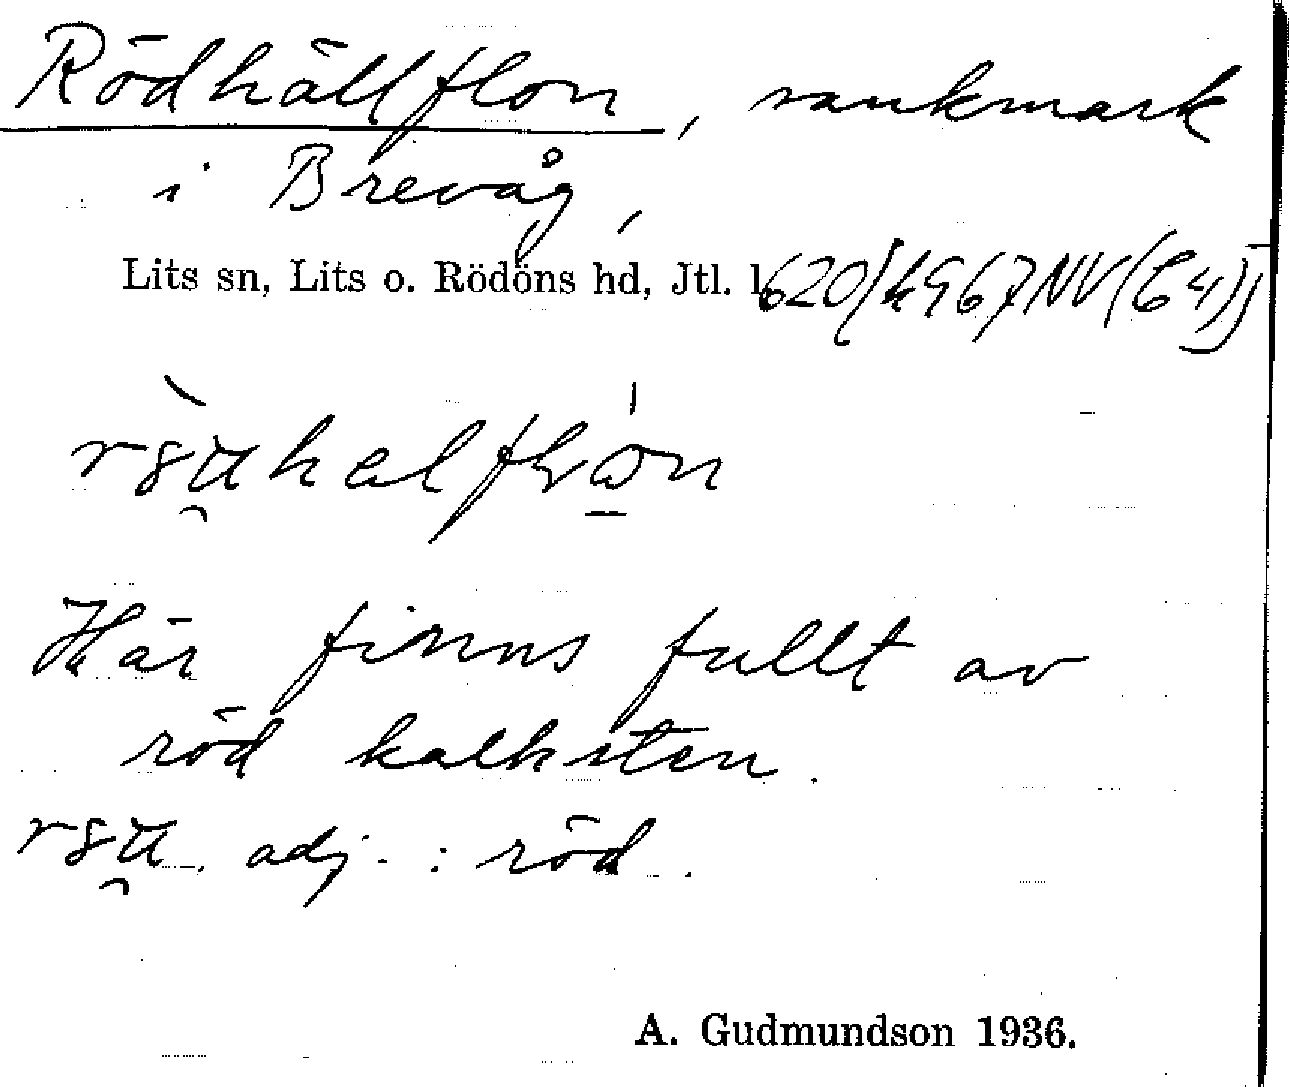 Rödhällflon, sankmark
i Brevåg,
Lits sn, Lits o. Rödöns hd, Jtl. l.
Här finns fullt av
röd kalksten.
adj. : röd.
A. Gudmundson 1936.